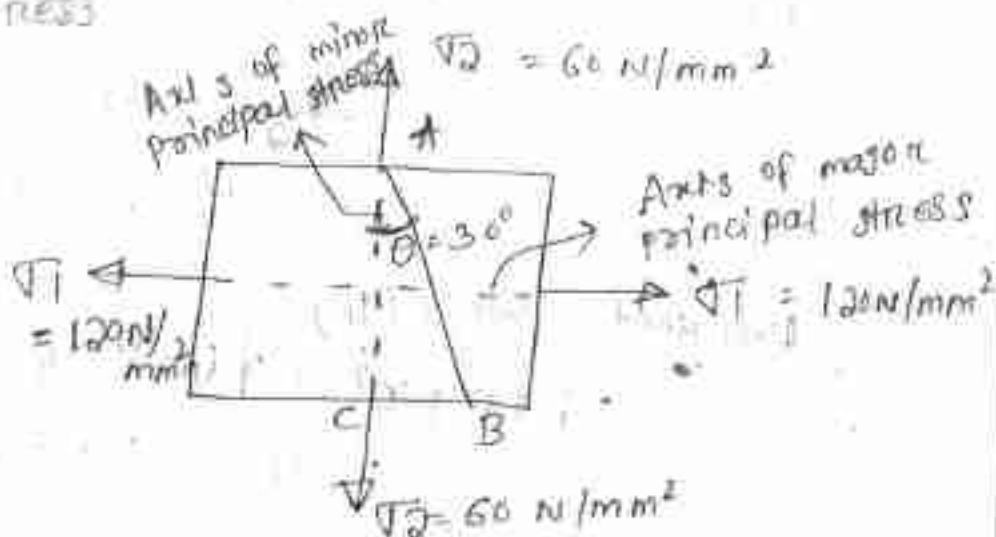 RESS
Axis of minor
principal stress
σ2 = 60 N/mm²
A
Axis of major
principal stress
θ=30°
σ1
= 120N/
mm²
σ1 = 120N/mm²
C
B
σ2=60 N/mm²